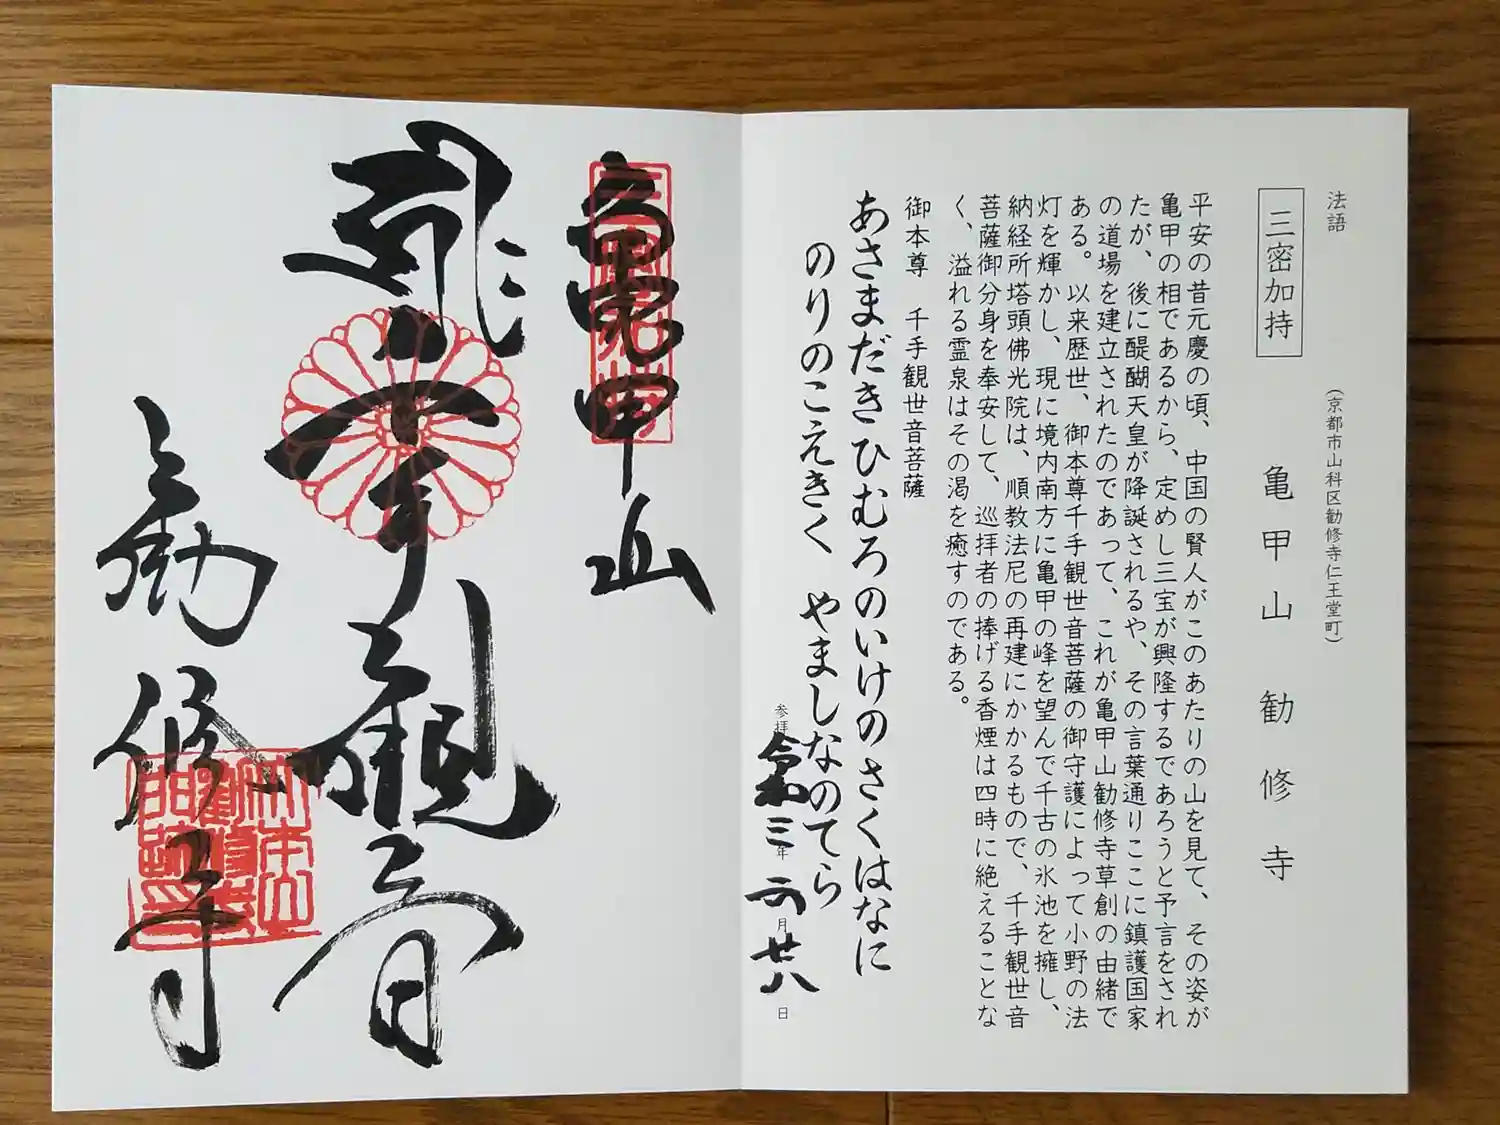 法語
(京都市山科区勧修寺仁王堂町)
三密加持　亀甲山勧修寺
平安の昔元慶の頃、中国の賢人がこのあたりの山を見て、その姿が
亀甲の相であるから、定めし三宝が興隆するであろうと予言をされ
たが、後に醍醐天皇が降誕されるや、その言葉通りここに鎮護国家
の道場を建立されたのであって、これが亀甲山勧修寺草創の由緒で
ある。以来歴世、御本尊千手観世音菩薩の御守護によって小野の法
灯を輝かし、現に境内南方に亀甲の峰を望んで千古の氷池を擁し、
納経所塔頭佛光院は、順教法尼の再建にかかるもので、千手観世音
菩薩御分身を奉安して、巡拝者の捧げる香煙は四時に絶えることな
く、溢れる霊泉はその渇を癒すのである。
御本尊　千手観世音菩薩
あさまだきひむろのいけのさくはなに
のりのこえきく　やましなのてら
参拝 令和三年二月廿八日
亀甲山
千手観音
勧修寺